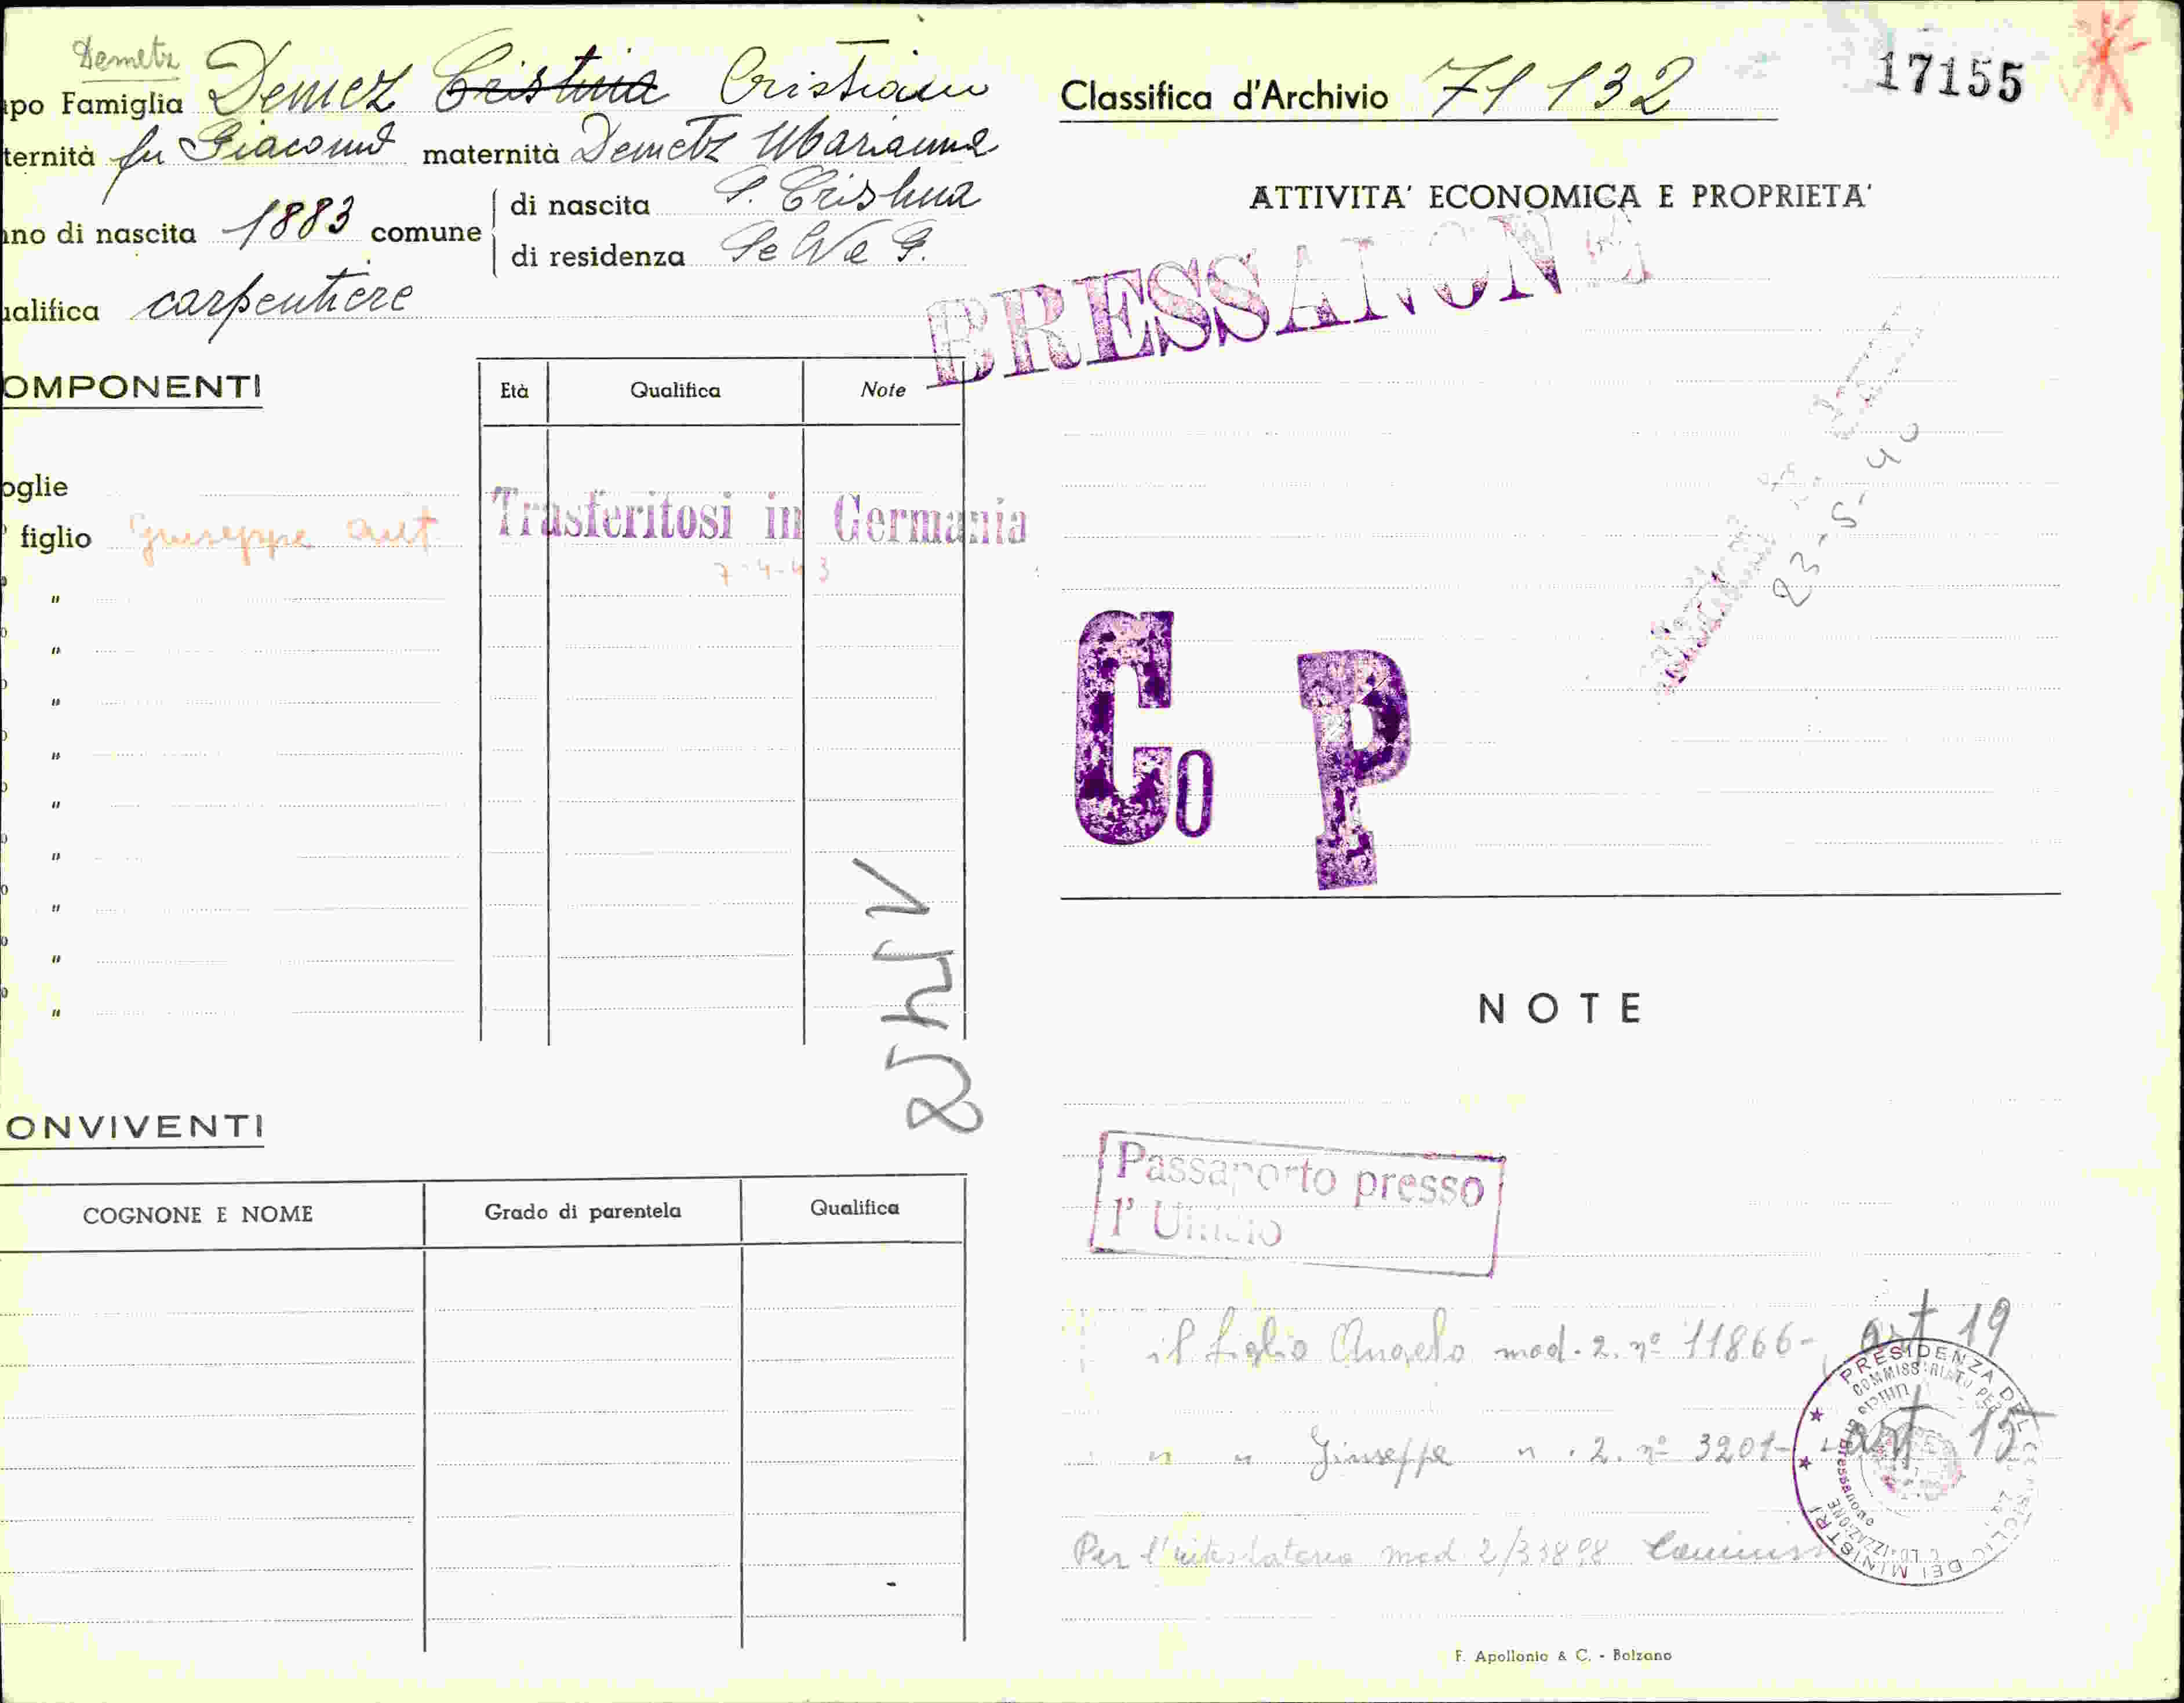 Demetz
apo Famiglia Demez Cristina Cristiano
ternità fu Giacomo maternità Demetz Marianna
nno di nascita 1883 comune di nascita S. Cristina
di residenza Selva G.
ualifica carpentiere
OMPONENTI
Età Qualifica Note
oglie
figlio Giuseppe aut
Trasferitosi in Germania
7-4-43
"
"
"
"
"
"
"
"
"
ONVIVENTI
COGNONE E NOME Grado di parentela Qualifica
Classifica d'Archivio 71 132
17155
ATTIVITA' ECONOMICA E PROPRIETA'
BRESSANONE
23-5-40
Co P
NOTE
Passaporto presso
l'Ufficio
il figlio Angelo mod. 2. nº 11866- art 19
" " Giuseppe " . 2. nº 3201- art 15
Per l' mod. 2/33898
PRESIDENZA DEL CONSIGLIO DEI MINISTRI
Ufficio di Bressanone
F. Apollonio & C. - Bolzano